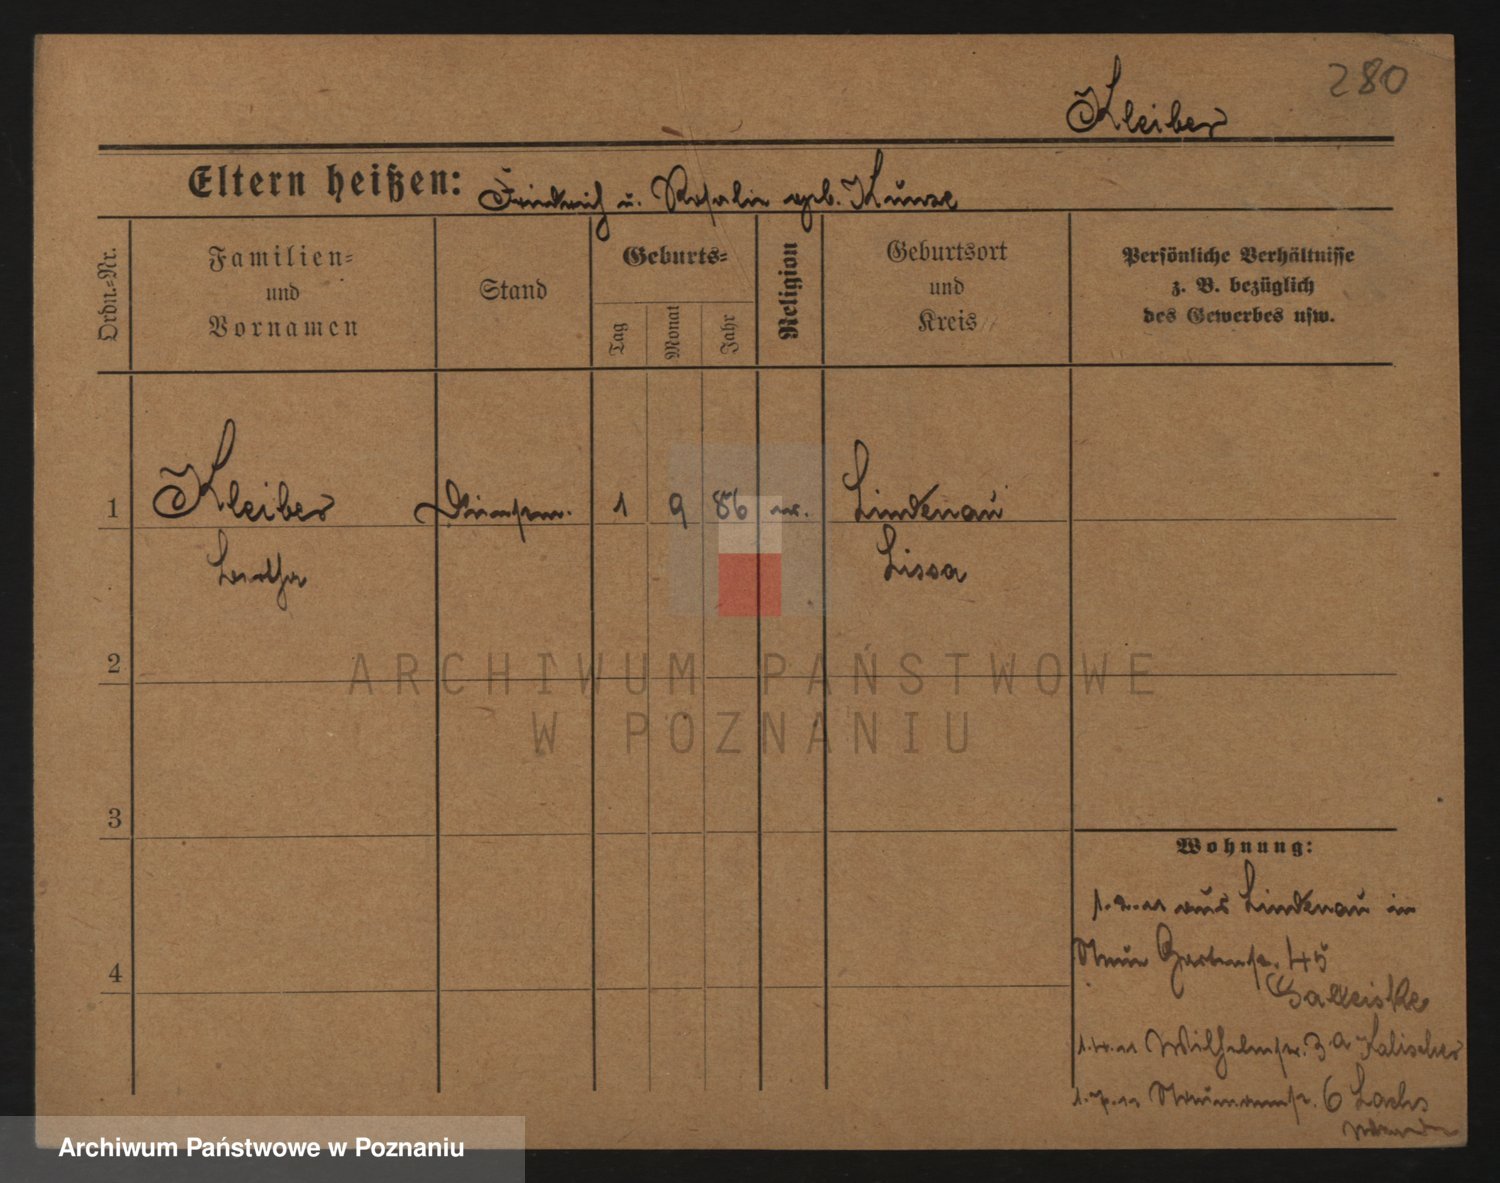 280
Kleiber
Eltern heißen: Friedrich u. Rosalie geb. Kunze
Ordn.=Nr.
Familien=
und
Vornamen
Stand
Geburts=
Tag
Monat
Jahr
Religion
Geburtsort
und
Kreis
Persönliche Verhältnisse
z. B. bezüglich
des Gewerbes usw.
1 Kleiber 1 9 86 Lindenau
Lissa
2
3
4
Wohnung:
aus Lindenau in
Neue Gartenstr. 45
Wilhelmstr. 3a Kalischer
Naumannstr. 6 Lachs
ARCHIWUM PAŃSTWOWE
W POZNANIU
Archiwum Państwowe w Poznaniu